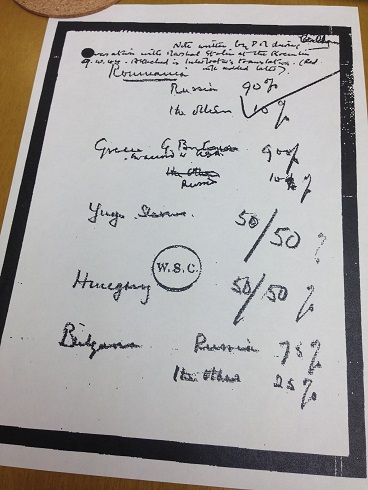 Note written by P.M. during
conversation with Marshal Stalin at the Kremlin
9.10.44. Attached is Interpreter's translation. (Red
ink added later).
Roumania
Russia 90%
The others 10%
Greece G. Britain 90%
in accord with U.S.A.
The others
Russia 10%
Yugo Slavia 50/50 %
W.S.C.
Hungary 50/50 %
Bulgaria Russia 75%
The others 25%